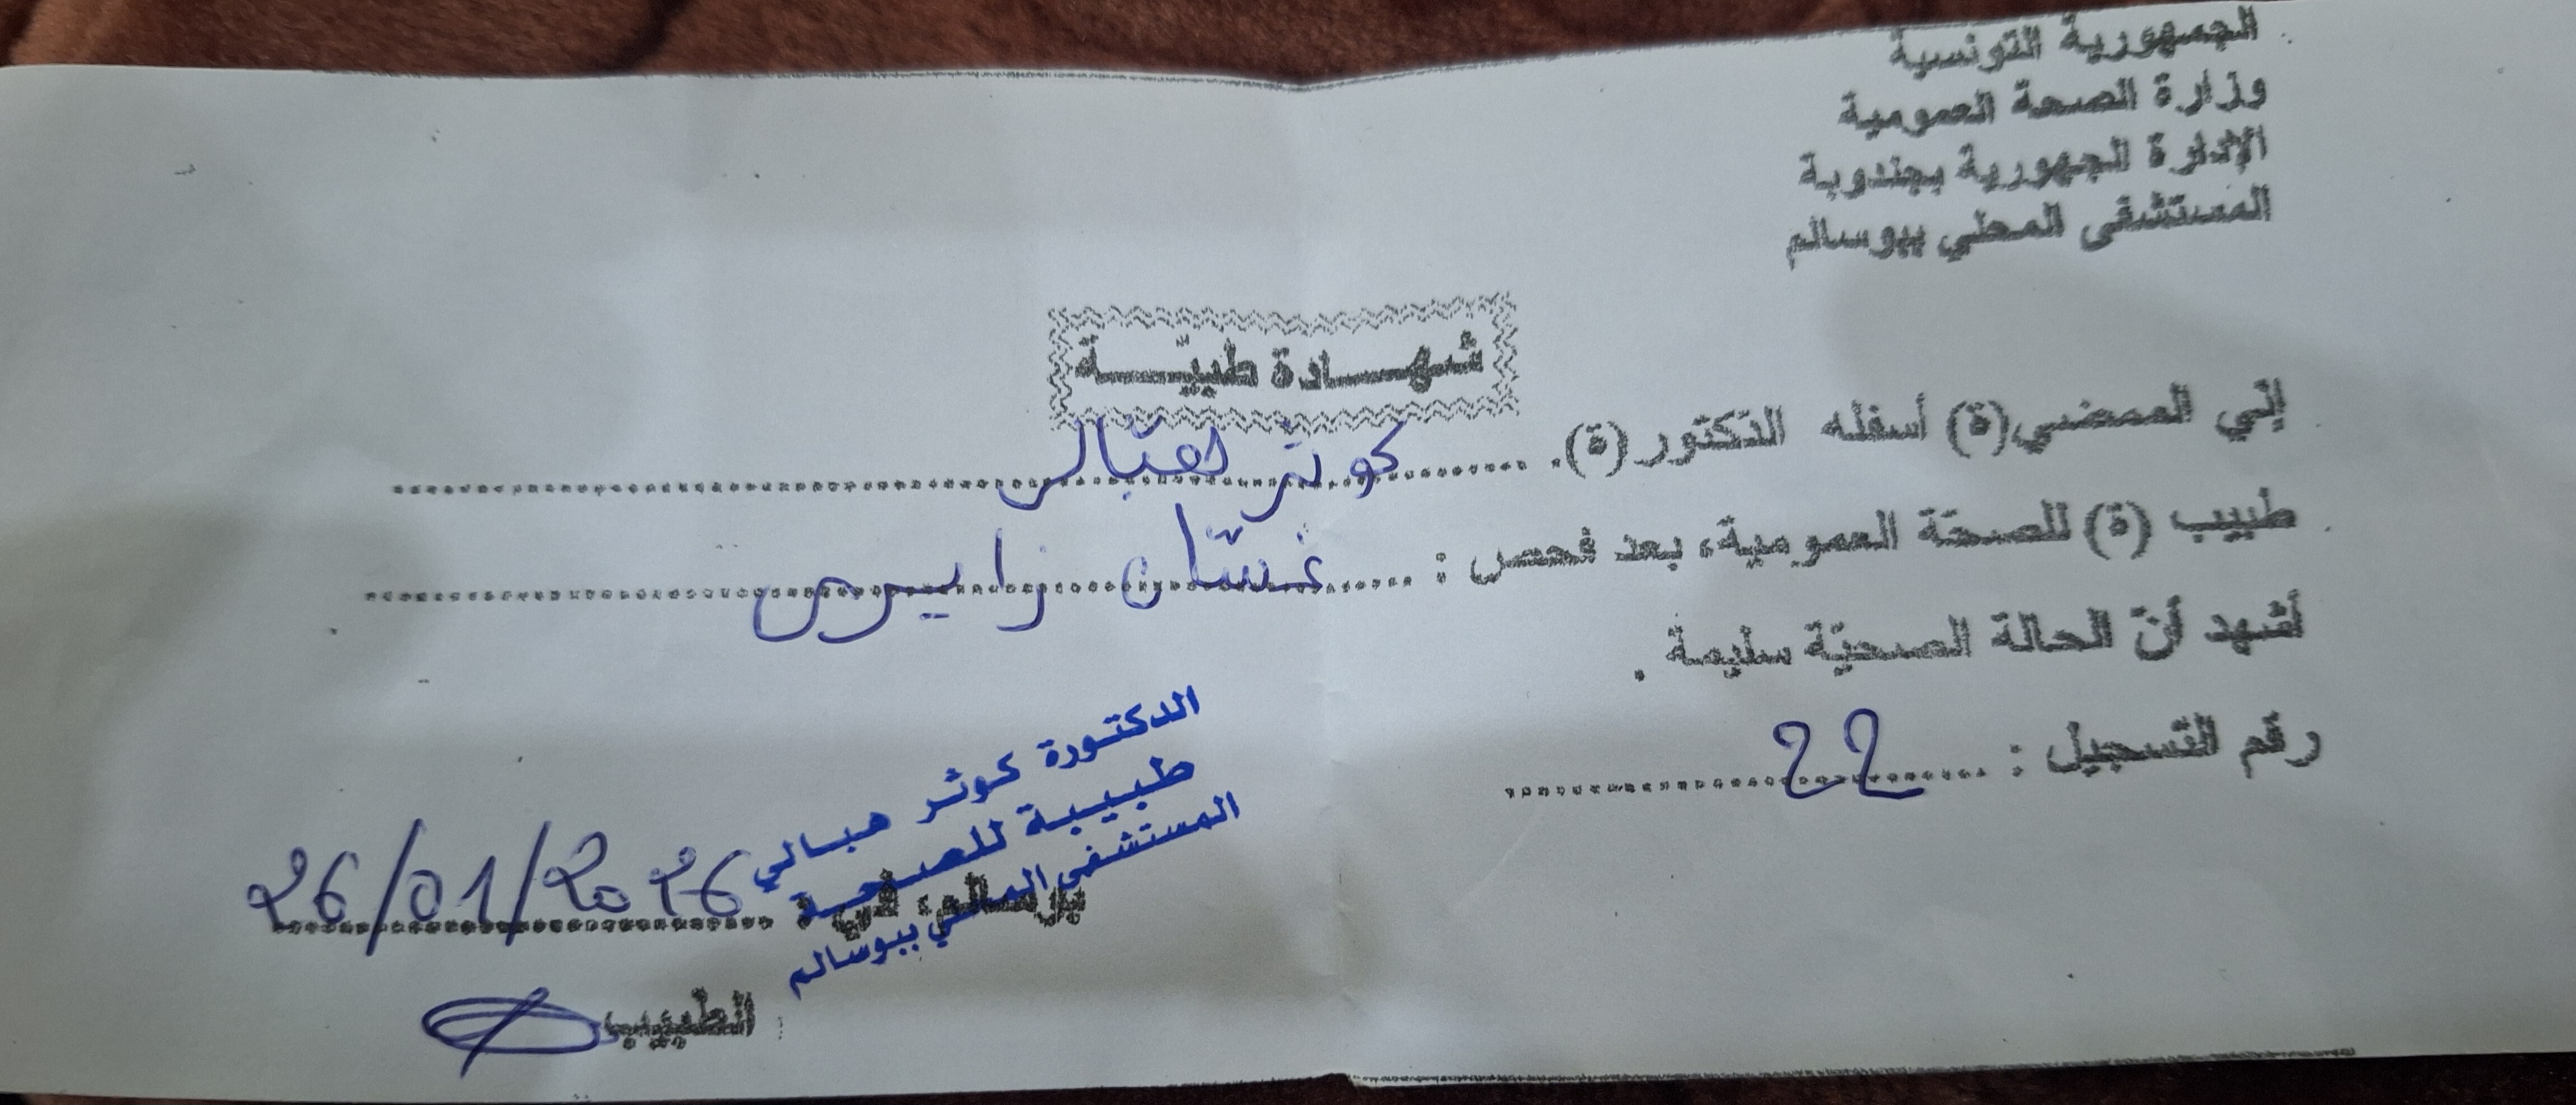 الجمهورية التونسية
وزارة الصحة العمومية
الإدارة الجهورية بجندوبة
المستشفى المحلي ببوسالم
شهــادة طبيّــة
إنّي الممضي(ة) أسفله الدّكتور (ة). كوثر هبالي
طبيب (ة) للصحّة العمومية، بعد فحص : غسّان زايري
أشهد أنّ الحالة الصحيّة سليمة .
رقم التّسجيل : 22
الدكتورة كوثر هبالي
طبيبة للصحة
المستشفى المحلي ببوسالم
بوسالم، في : 26/01/2026
الطّبيب